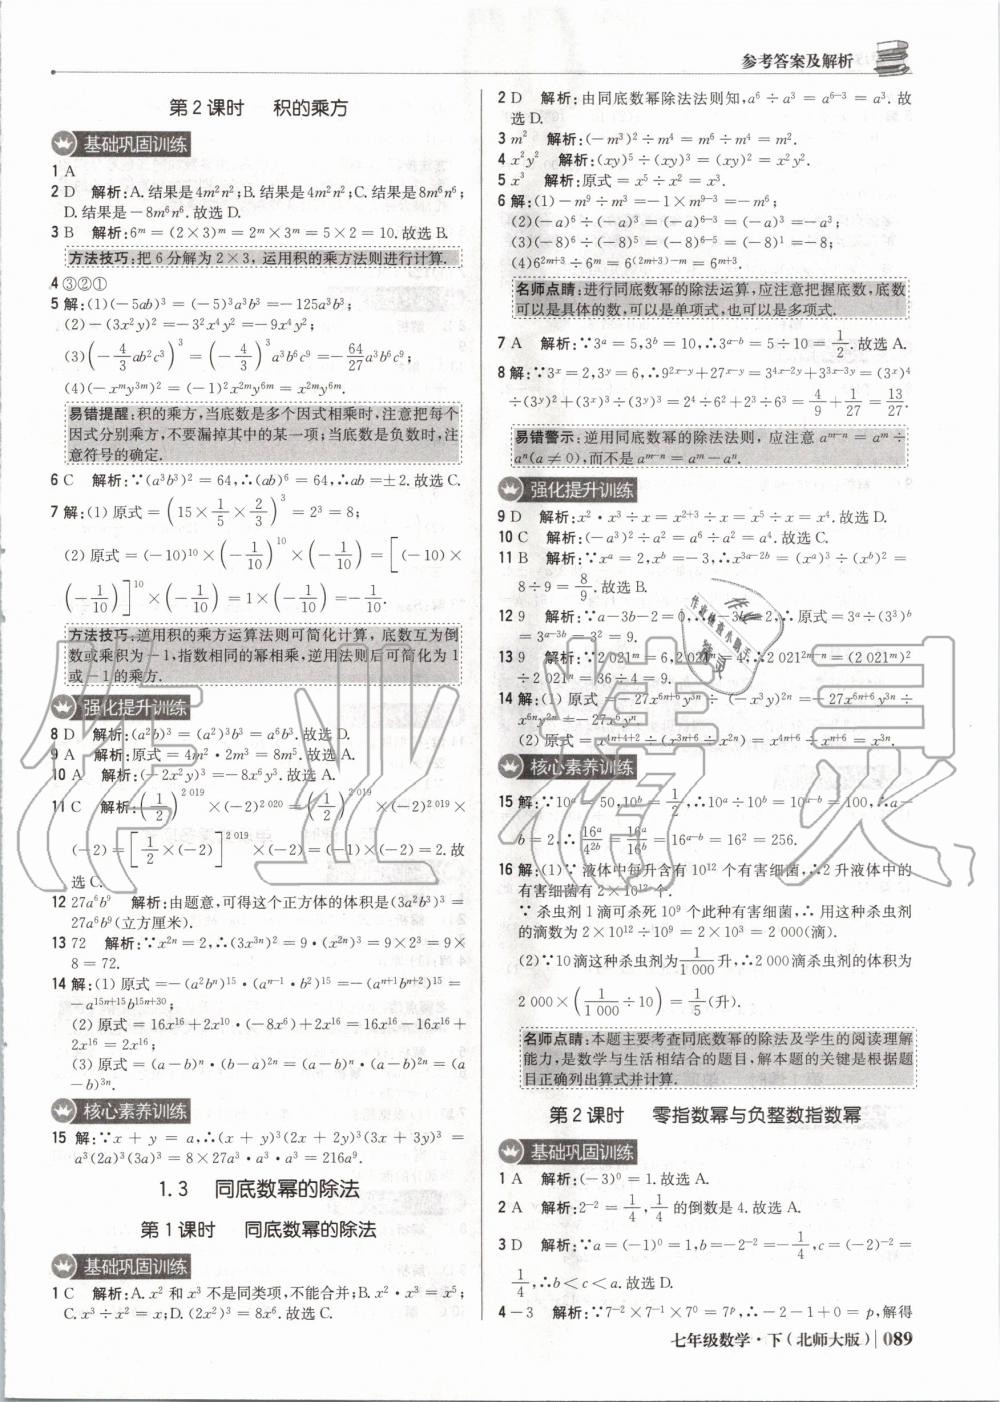 参考答案及解析
第2课时 积的乘方
基础巩固训练
1 A
2 D 解析:A.结果是4m²n²;B.结果是4m²n²;C.结果是8m⁶n⁶;
D.结果是-8m⁶n⁶.故选D.
3 B 解析:6ᵐ=(2×3)ᵐ=2ᵐ×3ᵐ=5×2=10.故选B.
方法技巧:把6分解为2×3,运用积的乘方法则进行计算.
4 ③②①
5 解:(1)(-5ab)³=(-5)³a³b³=-125a³b³;
(2)-(3x²y)²=-3²x⁴y²=-9x⁴y²;
(3)(-4/3 ab²c³)³=(-4/3)³a³b⁶c⁹=-64/27 a³b⁶c⁹;
(4)(-xᵐy³ᵐ)²=(-1)²x²ᵐy⁶ᵐ=x²ᵐy⁶ᵐ.
易错提醒:积的乘方,当底数是多个因式相乘时,注意把每个
因式分别乘方,不要漏掉其中的某一项;当底数是负数时,注
意符号的确定.
6 C 解析:∵(a³b³)²=64,∴(ab)⁶=64,∴ab=±2.故选C.
7 解:(1)原式=(15×1/5×2/3)³=2³=8;
(2)原式=(-10)¹⁰×(-1/10)¹⁰×(-1/10)=[(-10)×
(-1/10)]¹⁰×(-1/10)=1×(-1/10)=-1/10.
方法技巧:逆用积的乘方运算法则可简化计算,底数互为倒
数或乘积为-1,指数相同的幂相乘,逆用法则后可简化为1
或-1的乘方.
强化提升训练
8 D 解析:(a²b)³=(a²)³b³=a⁶b³.故选D.
9 A 解析:原式=4m²·2m³=8m⁵.故选A.
10 A 解析:(-2x²y)³=-8x⁶y³.故选A.
11 C 解析:(1/2)²⁰¹⁹×(-2)²⁰²⁰=(1/2)²⁰¹⁹×(-2)²⁰¹⁹×
(-2)=[1/2×(-2)]²⁰¹⁹×(-2)=(-1)×(-2)=2.故
选C.
12 27a⁶b⁹ 解析:由题意,可得这个正方体的体积是(3a²b³)³=
27a⁶b⁹(立方厘米).
13 72 解析:∵x²ⁿ=2,∴(3x³ⁿ)²=9·(x²ⁿ)³=9×2³=9×
8=72.
14 解:(1)原式=-(a²bⁿ)¹⁵·(aⁿ⁻¹·b²)¹⁵=-(aⁿ⁺¹bⁿ⁺²)¹⁵=
-a¹⁵ⁿ⁺¹⁵b¹⁵ⁿ⁺³⁰;
(2)原式=16x¹⁶+2x¹⁰·(-8x⁶)+2x¹⁶=16x¹⁶-16x¹⁶+
2x¹⁶=2x¹⁶;
(3)原式=(a-b)ⁿ·(b-a)²ⁿ=(a-b)ⁿ·(a-b)²ⁿ=(a
-b)³ⁿ.
核心素养训练
15 解:∵x+y=a,∴(x+y)³(2x+2y)³(3x+3y)³=
a³(2a)³(3a)³=8×27a³·a³·a³=216a⁹.
1.3 同底数幂的除法
第1课时 同底数幂的除法
基础巩固训练
1 C 解析:A.x²和x³不是同类项,不能合并;B.x²·x³=x⁵;
C.x³÷x²=x;D.(2x²)³=8x⁶.故选C.
2 D 解析:由同底数幂除法法则知,a⁶÷a³=a⁶⁻³=a³.故
选D.
3 m² 解析:(-m³)²÷m⁴=m⁶÷m⁴=m².
4 x²y² 解析:(xy)⁵÷(xy)³=(xy)²=x²y².
5 x³ 解析:原式=x⁵÷x²=x³.
6 解:(1)-m⁹÷m³=-1×m⁹⁻³=-m⁶;
(2)(-a)⁶÷(-a)³=(-a)⁶⁻³=(-a)³=-a³;
(3)(-8)⁶÷(-8)⁵=(-8)⁶⁻⁵=(-8)¹=-8;
(4)6²ᵐ⁺³÷6ᵐ=6⁽²ᵐ⁺³⁾⁻ᵐ=6ᵐ⁺³.
名师点睛:进行同底数幂的除法运算,应注意把握底数,底数
可以是具体的数,可以是单项式,也可以是多项式.
7 A 解析:∵3ᵃ=5,3ᵇ=10,∴3ᵃ⁻ᵇ=5÷10=1/2.故选A.
8 解:∵3ˣ=2,3ʸ=6,∴9²ˣ⁻ʸ+27ˣ⁻ʸ=3⁴ˣ⁻²ʸ+3³ˣ⁻³ʸ=(3ˣ)⁴
÷(3ʸ)²+(3ˣ)³÷(3ʸ)³=2⁴÷6²+2³÷6³=4/9+1/27=13/27.
易错警示:逆用同底数幂的除法法则,应注意aᵐ⁻ⁿ=aᵐ÷
aⁿ(a≠0),而不是aᵐ⁻ⁿ=aᵐ-aⁿ.
强化提升训练
9 D 解析:x²·x³÷x=x²⁺³÷x=x⁵÷x=x⁴.故选D.
10 C 解析:(-a³)²÷a²=a⁶÷a²=a⁴.故选C.
11 B 解析:∵xᵃ=2,xᵇ=-3,∴x³ᵃ⁻²ᵇ=(xᵃ)³÷(xᵇ)²=
8÷9=8/9.故选B.
12 9 解析:∵a-3b-2=0,∴a-3b=2,∴原式=3ᵃ÷(3³)ᵇ
=3ᵃ⁻³ᵇ=3²=9.
13 9 解析:∵2 021ᵐ=6,2 021ⁿ=4,∴2 021²ᵐ⁻ⁿ=(2 021ᵐ)²
÷2 021ⁿ=36÷4=9.
14 解:(1)原式=-27x⁶ⁿ⁺⁶y³ⁿ÷(-x³y)²ⁿ=-27x⁶ⁿ⁺⁶y³ⁿ÷
x⁶ⁿy²ⁿ=-27x⁶yⁿ.
(2)原式=x⁴ⁿ⁺⁴⁺²÷(x³ⁿ⁺⁶÷x²ⁿ)=x⁴ⁿ⁺⁶÷xⁿ⁺⁶=x³ⁿ.
核心素养训练
15 解:∵10ᵃ=50,10ᵇ=1/2,∴10ᵃ÷10ᵇ=10ᵃ⁻ᵇ=100,∴a-
b=2,∴16ᵃ/4²ᵇ=16ᵃ/16ᵇ=16ᵃ⁻ᵇ=16²=256.
16 解:(1)∵液体中每升含有10¹²个有害细菌,∴2升液体中的
有害细菌有2×10¹²个.
∵杀虫剂1滴可杀死10⁹个此种有害细菌,∴用这种杀虫剂
的滴数为2×10¹²÷10⁹=2×10³=2 000(滴).
(2)∵10滴这种杀虫剂为1/1 000升,∴2 000滴杀虫剂的体积为
2 000×(1/1 000÷10)=1/5(升).
名师点睛:本题主要考查同底数幂的除法及学生的阅读理解
能力,是数学与生活相结合的题目,解本题的关键是根据题
目正确列出算式并计算.
第2课时 零指数幂与负整数指数幂
基础巩固训练
1 A 解析:(-3)⁰=1.故选A.
2 A 解析:2⁻²=1/4,1/4的倒数是4.故选A.
3 D 解析:∵a=(-1)⁰=1,b=-2⁻²=-1/4,c=(-2)⁻²=
1/4,∴b<c<a.故选D.
4 -3 解析:∵7⁻²×7⁻¹×7⁰=7ᵖ,∴-2-1+0=p,解得
七年级数学·下(北师大版) 089
作业精灵